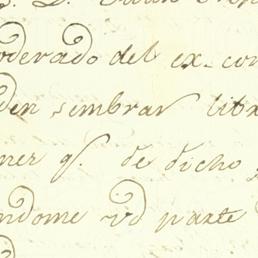 oderado del ex-con
den sembrar libr
ner q. de dicho
ndome vd parte